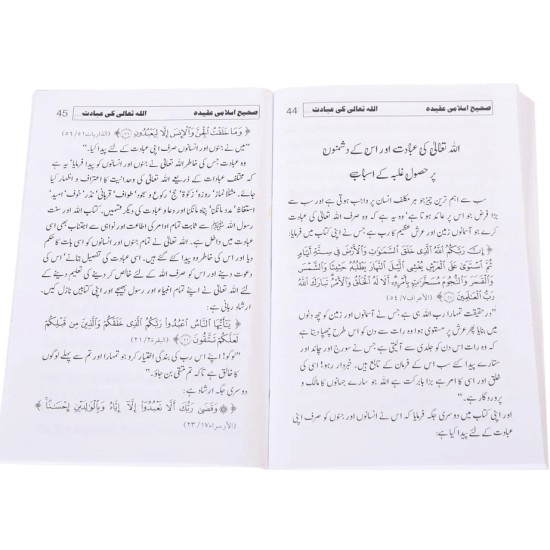 44 الله تعالیٰ کی عبادت صحیح اسلامی عقیدہ
اللہ تعالیٰ کی عبادت اور اس کے دشمنوں
پر حصول غلبہ کے اسباب
سب سے اہم ترین چیز جو ہر مکلف انسان پر واجب ہوتی ہے اور سب سے
بڑا فرض جو اس پر عائد ہوتا ہے‘ وہ یہ ہے کہ وہ صرف اللہ تعالیٰ کی عبادت
کرے جو آسمانوں اور زمین اور عرش عظیم کا رب ہے جس نے اپنی کتاب میں فرمایا:
﴿إِنَّ رَبَّكُمُ اللَّهُ الَّذِي خَلَقَ السَّمَاوَاتِ وَالْأَرْضَ فِي سِتَّةِ أَيَّامٍ
ثُمَّ اسْتَوَىٰ عَلَى الْعَرْشِ يُغْشِي اللَّيْلَ النَّهَارَ يَطْلُبُهُ حَثِيثًا وَالشَّمْسَ
وَالْقَمَرَ وَالنُّجُومَ مُسَخَّرَاتٍ بِأَمْرِهِ أَلَا لَهُ الْخَلْقُ وَالْأَمْرُ تَبَارَكَ اللَّهُ
رَبُّ الْعَالَمِينَ﴾ (الأعراف٧/٥٤)
”درحقیقت تمہارا رب اللہ ہی ہے جس نے آسمانوں اور زمین کو چھ دنوں
میں بنایا پھر عرش پر مستوی ہوا وہ رات سے دن کو اس طرح چھپا دیتا ہے
کہ وہ رات اس دن کو جلدی سے آ لیتی ہے جس نے سورج اور چاند اور
ستارے پیدا کئے سب اس کے فرمان کے تابع ہیں۔ خبردار رہو! اسی کی
خلق اور اسی کا امر ہے بڑا بابرکت ہے اللہ جو سارے جہانوں کا مالک و
پروردگار ہے۔“
اور اپنی کتاب میں دوسری جگہ فرمایا کہ اس نے انسانوں اور جنوں کو صرف اپنی
عبادت کے لئے پیدا کیا ہے:
45 الله تعالیٰ کی عبادت صحیح اسلامی عقیدہ
﴿وَمَا خَلَقْتُ الْجِنَّ وَالْإِنسَ إِلَّا لِيَعْبُدُونِ﴾ (الذاريات٥١/٥٦)
”میں نے جنوں اور انسانوں کو صرف اپنی عبادت کے لئے پیدا کیا۔“
وہ عبادت جس کی خاطر اللہ تعالیٰ نے جنوں اور انسانوں کو پیدا فرمایا‘ یہ ہے
کہ مختلف عبادات کے ذریعے اللہ تعالیٰ کی وحدانیت کا اعتراف و اظہار کیا
جائے۔ مثلاً نماز‘ روزہ‘ زکوٰة‘ حج‘ رکوع و سجود‘ طواف‘ قربانی‘ نذر‘ خوف‘ امید‘
استغاثہ‘ مدد مانگنا‘ پناہ مانگنا اور دعا و عبادت کی دیگر قسمیں۔ کتاب اللہ اور سنت
رسول اللہ میں ثابت تمام اوامر کی اطاعت اور نواہی سے اجتناب بھی اسی
عبادت میں داخل ہے۔ اللہ تعالیٰ نے تمام جنوں اور انسانوں کو اسی بات کا حکم
دیا ہے اور وہ اسی کی خاطر پیدا کئے گئے ہیں۔ اسی عبادت کی تفصیل بتانے‘ اس کی
دعوت دینے اور اس کو صرف اللہ کے لئے خاص کرنے کی تعلیم دینے کے
لئے اللہ تعالیٰ نے اپنے تمام انبیاء اور رسول بھیجے اور اپنی کتابیں نازل کیں۔
ارشاد ربانی ہے:
﴿يَا أَيُّهَا النَّاسُ اعْبُدُوا رَبَّكُمُ الَّذِي خَلَقَكُمْ وَالَّذِينَ مِن قَبْلِكُمْ
لَعَلَّكُمْ تَتَّقُونَ﴾ (البقرة٢/٢١)
”لوگو! اپنے اس رب کی بندگی اختیار کرو جو تمہارا اور تم سے پہلے لوگوں
کا خالق ہے تاکہ تم متقی بن جاؤ۔“
دوسری جگہ ارشاد ہے:
﴿وَقَضَىٰ رَبُّكَ أَلَّا تَعْبُدُوا إِلَّا إِيَّاهُ وَبِالْوَالِدَيْنِ إِحْسَانًا﴾
(الإسراء١٧/٢٣)